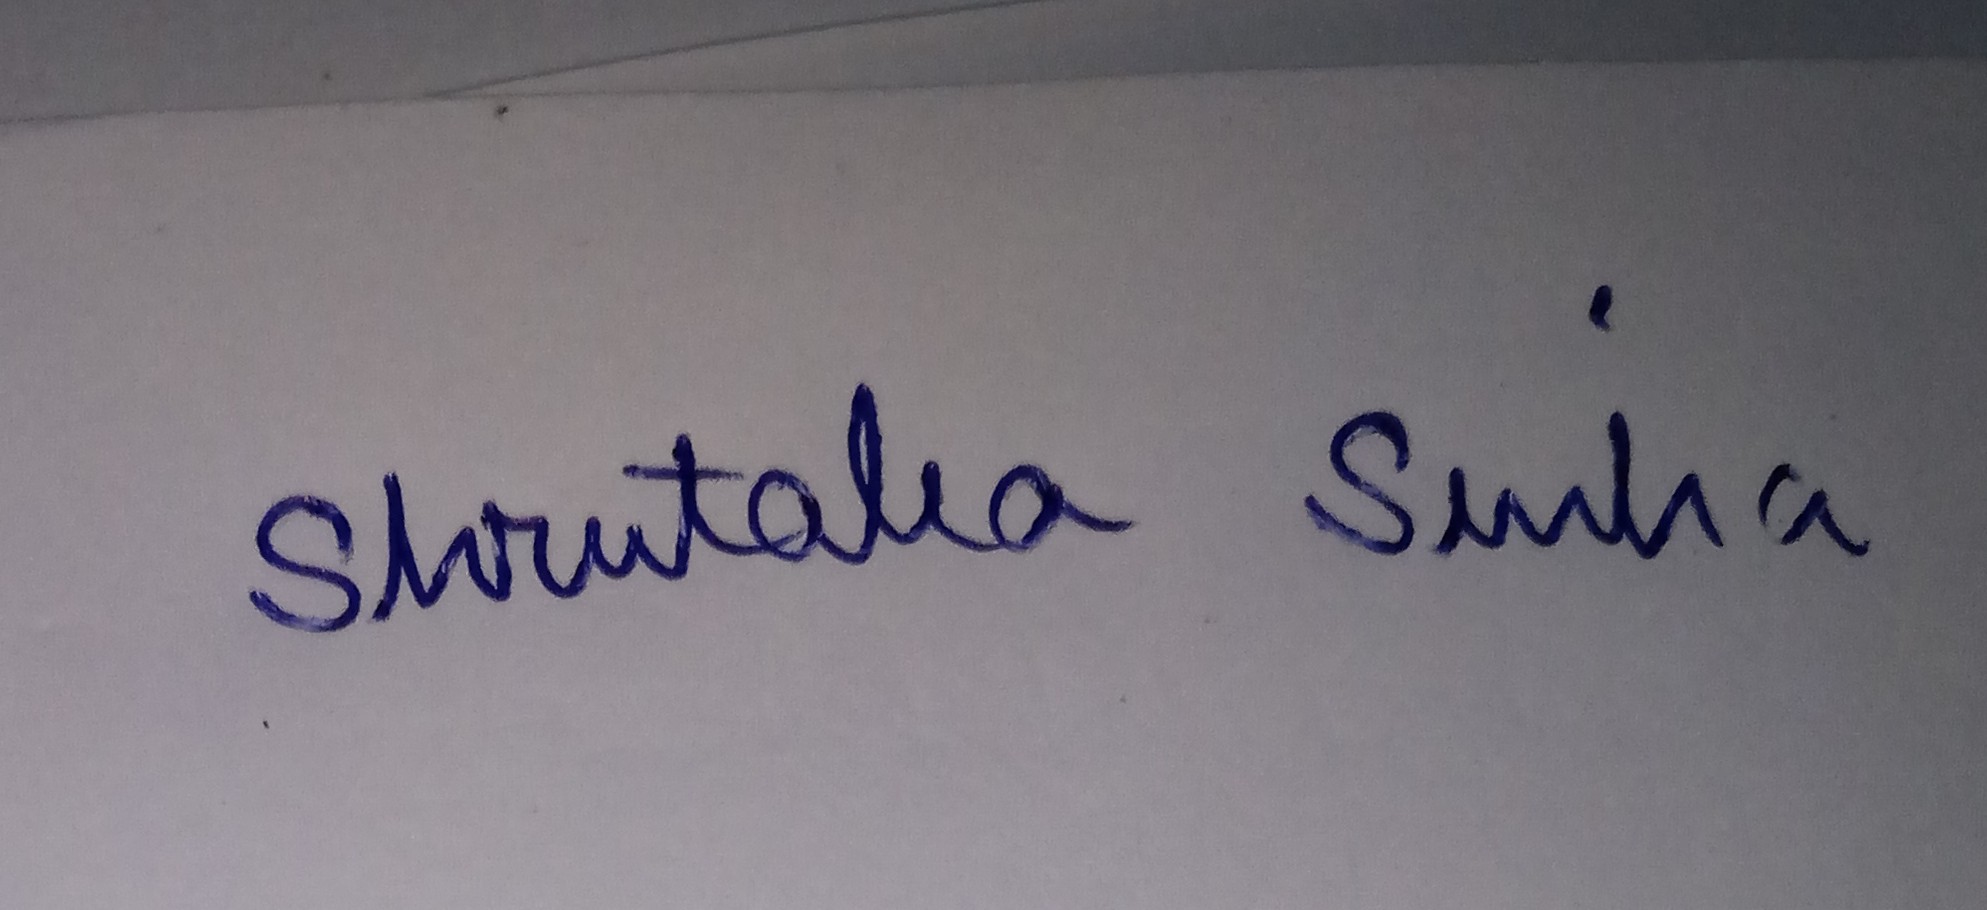 Shrutaha Sinha